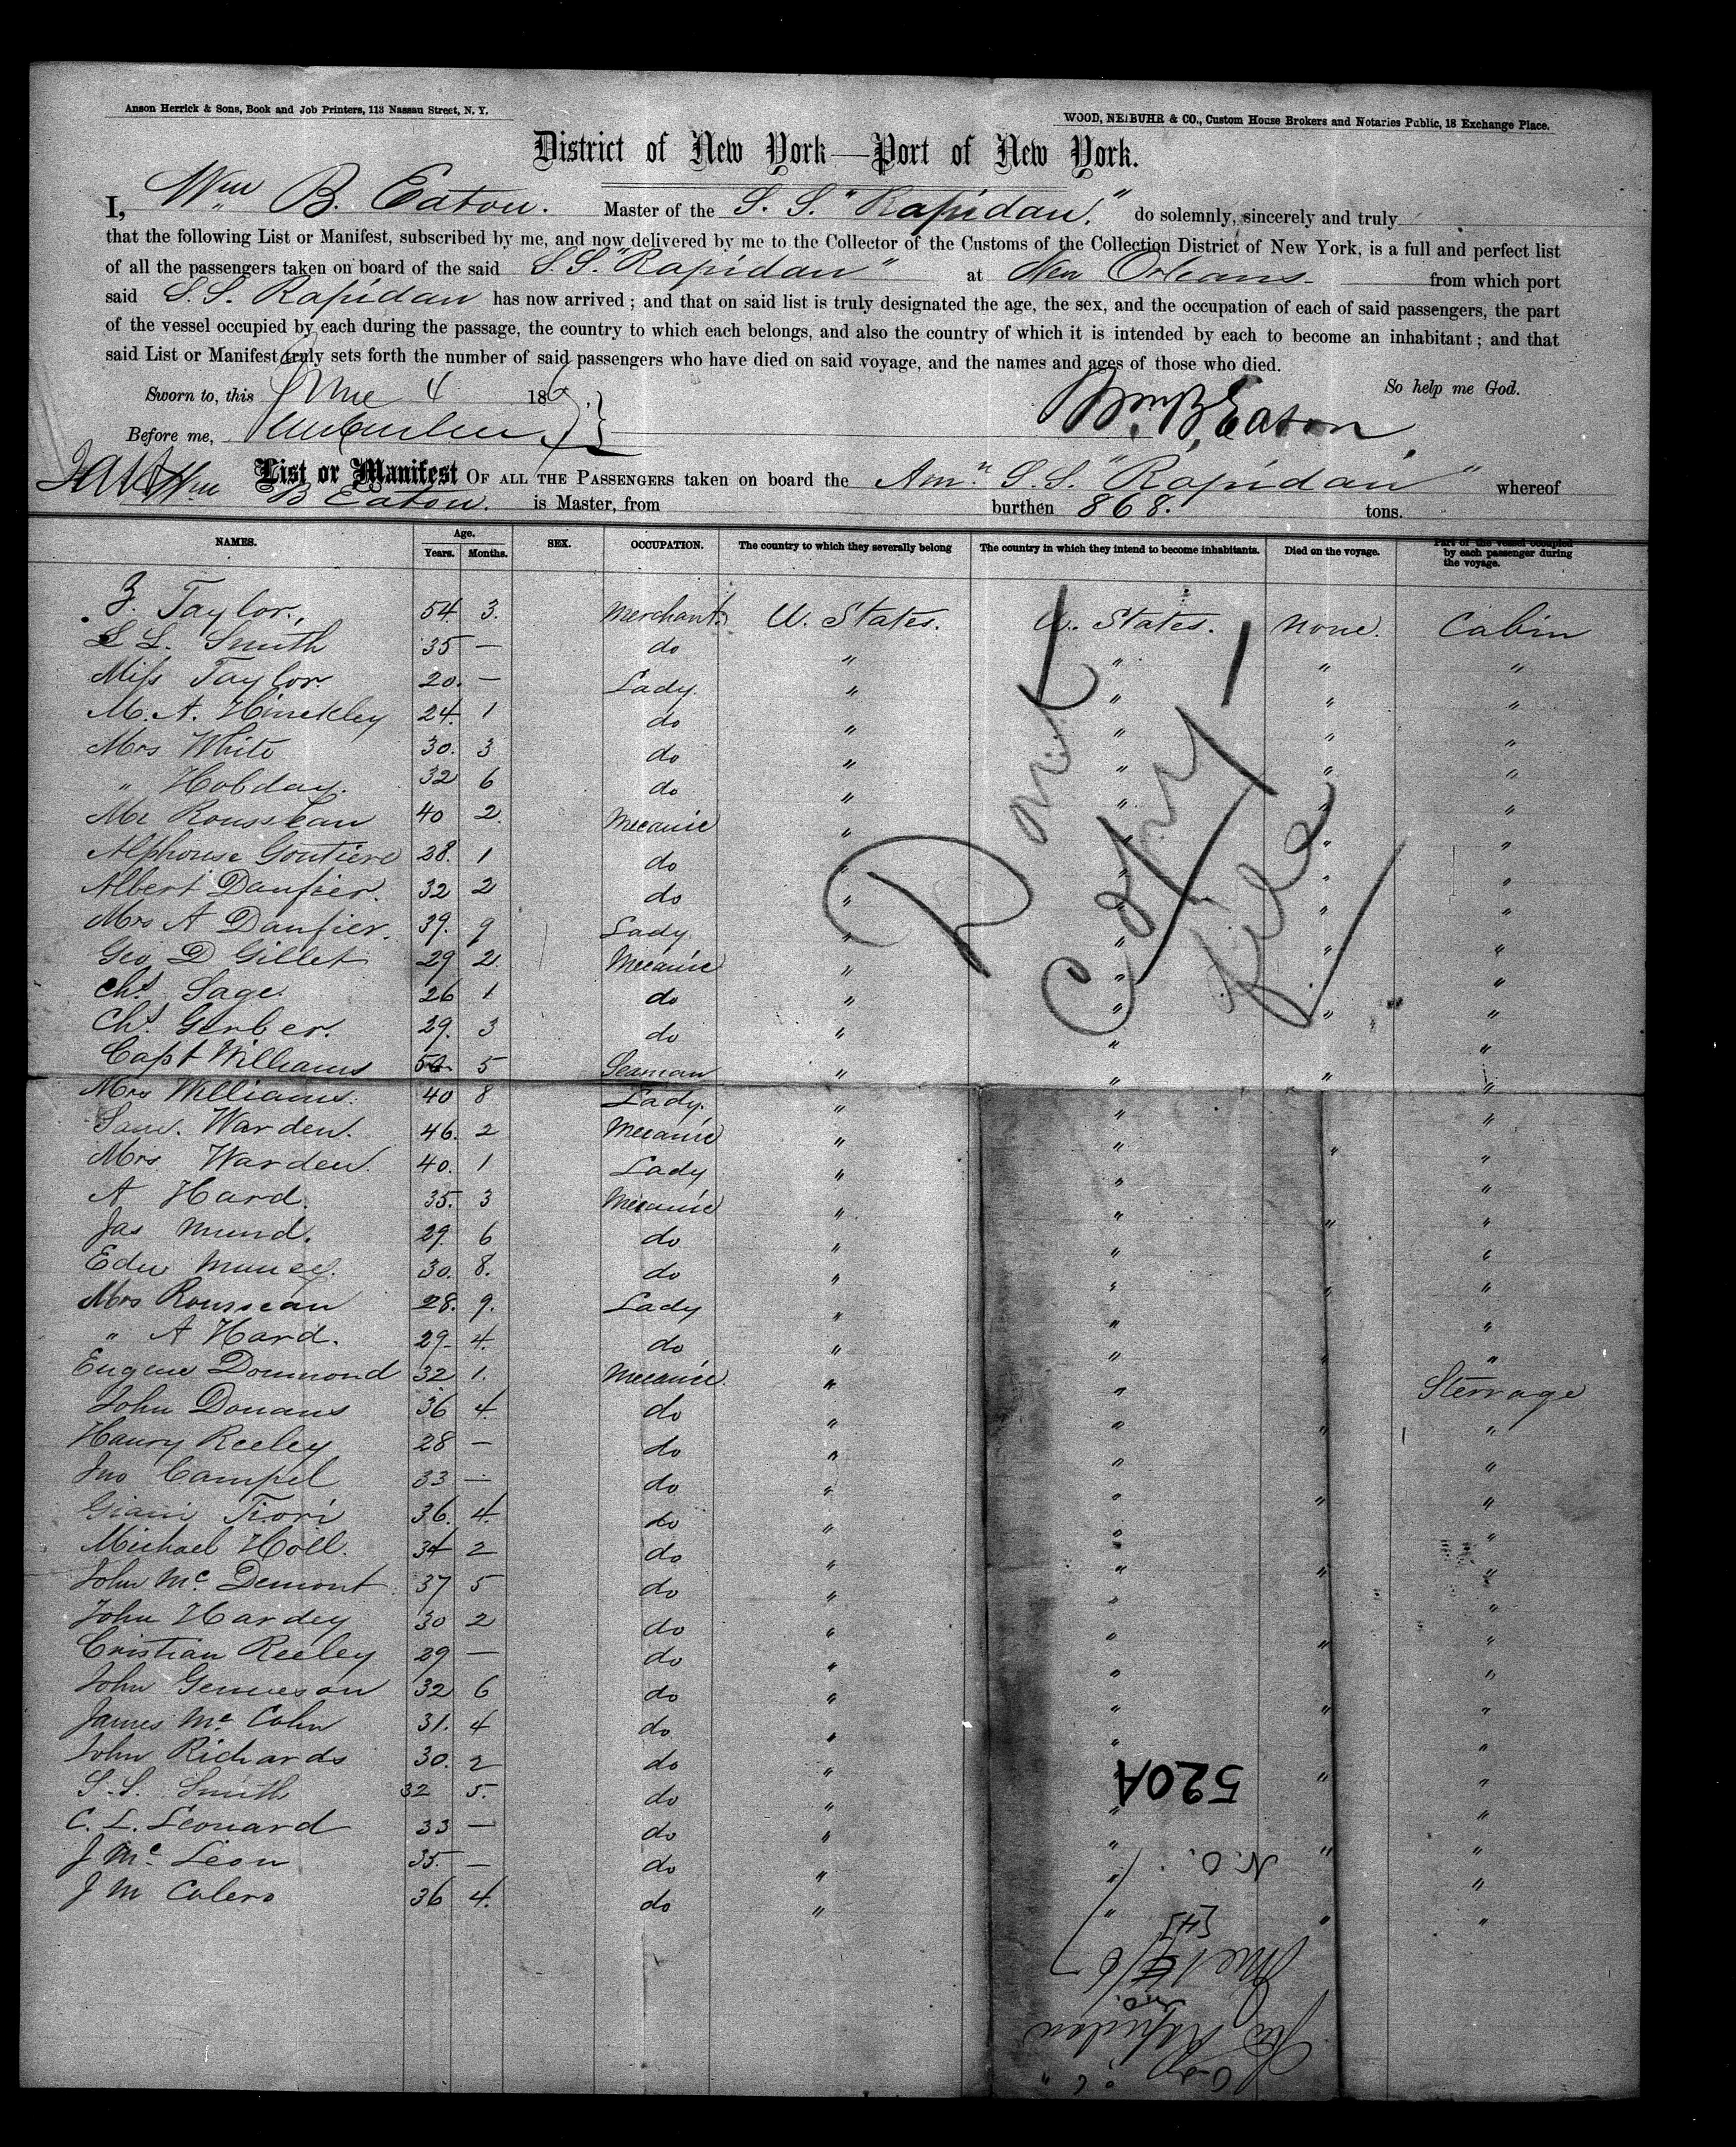 Anson Herrick & Sons, Book and Job Printers, 113 Nassau Street, N. Y.
WOOD, NEIBUHR & CO., Custom House Brokers and Notaries Public, 18 Exchange Place.
District of New York—Port of New York.
I, Wm B. Eaton. Master of the S. S. "Rapidan." do solemnly, sincerely and truly
that the following List or Manifest, subscribed by me, and now delivered by me to the Collector of the Customs of the Collection District of New York, is a full and perfect list
of all the passengers taken on board of the said S. S. "Rapidan" at New Orleans. from which port
said S. S. Rapidan has now arrived; and that on said list is truly designated the age, the sex, and the occupation of each of said passengers, the part
of the vessel occupied by each during the passage, the country to which each belongs, and also the country of which it is intended by each to become an inhabitant; and that
said List or Manifest truly sets forth the number of said passengers who have died on said voyage, and the names and ages of those who died.
So help me God.
Sworn to, this June 4 1867.
Wm. B. Eaton
Before me,
List or Manifest OF ALL THE PASSENGERS taken on board the Amn. S. S. "Rapidan" whereof
Wm B Eaton. is Master, from burthen 868. tons.
NAMES. Age. Years. Months. SEX. OCCUPATION. The country to which they severally belong The country in which they intend to become inhabitants. Died on the voyage. Part of the vessel occupied by each passenger during the voyage.
Z. Taylor, 54. 3. Merchant. U. States. U. States. None. Cabin
S L. Smith 35 — do " " " "
Miss Taylor. 20. — Lady. " " " "
M. A. Hinckley 24. 1 do " " " "
Mrs White 30. 3 do " " " "
" Hobday. 32 6 do " " " "
Mr Rousseau 40 2. Mecanic " " " "
Alphonse Goutiere 28. 1 do " " " "
Albert Danfier. 32 2 do " " " "
Mrs A Danfier. 39. 9 Lady " " " "
Geo D Gillet 29 2. Mecanic " " " "
Chs. Sage. 26 1 do " " " "
Chs. Gerber. 29. 3 do " " " "
Capt Williams 50. 5 Seaman " " " "
Mrs Williams. 40 8 Lady. " " " "
Sam. Warden. 46. 2 Mecanic " " " "
Mrs Warden. 40. 1 Lady " " " "
A Hard. 35. 3 Mecanic " " " "
Jas Mund. 29. 6 do " " " "
Edw Muncy. 30. 8. do " " " "
Mrs Rousseau 28. 9. Lady " " " "
" A Hard. 29. 4. do " " " "
Eugene Dommond 32 1. Mecanic. " " " Sterrage
John Donans 36 4. do " " " "
Haury Reeley 28 — do " " " "
Jno Campel 33 — do " " " "
Giani Tiori 36. 4. do " " " "
Michael Holl. 34 2 do " " " "
John Mc Demont 37 5 do " " " "
John Hardey 30 2 do " " " "
Cristian Reeley 29 — do " " " "
John Gemieson 32 6 do " " " "
James Mc Cohn 31. 4 do " " " "
John Richards 30. 2 do " " " "
S. S. Smith 32 5. do " " " "
C. L. Leonard 33 — do " " " "
J Mc. Leon 35. — do " " " "
J M Calero 36 4. do " " " "
Don't
Copy
file
520A
N. O.
June 4/67
Rapidan